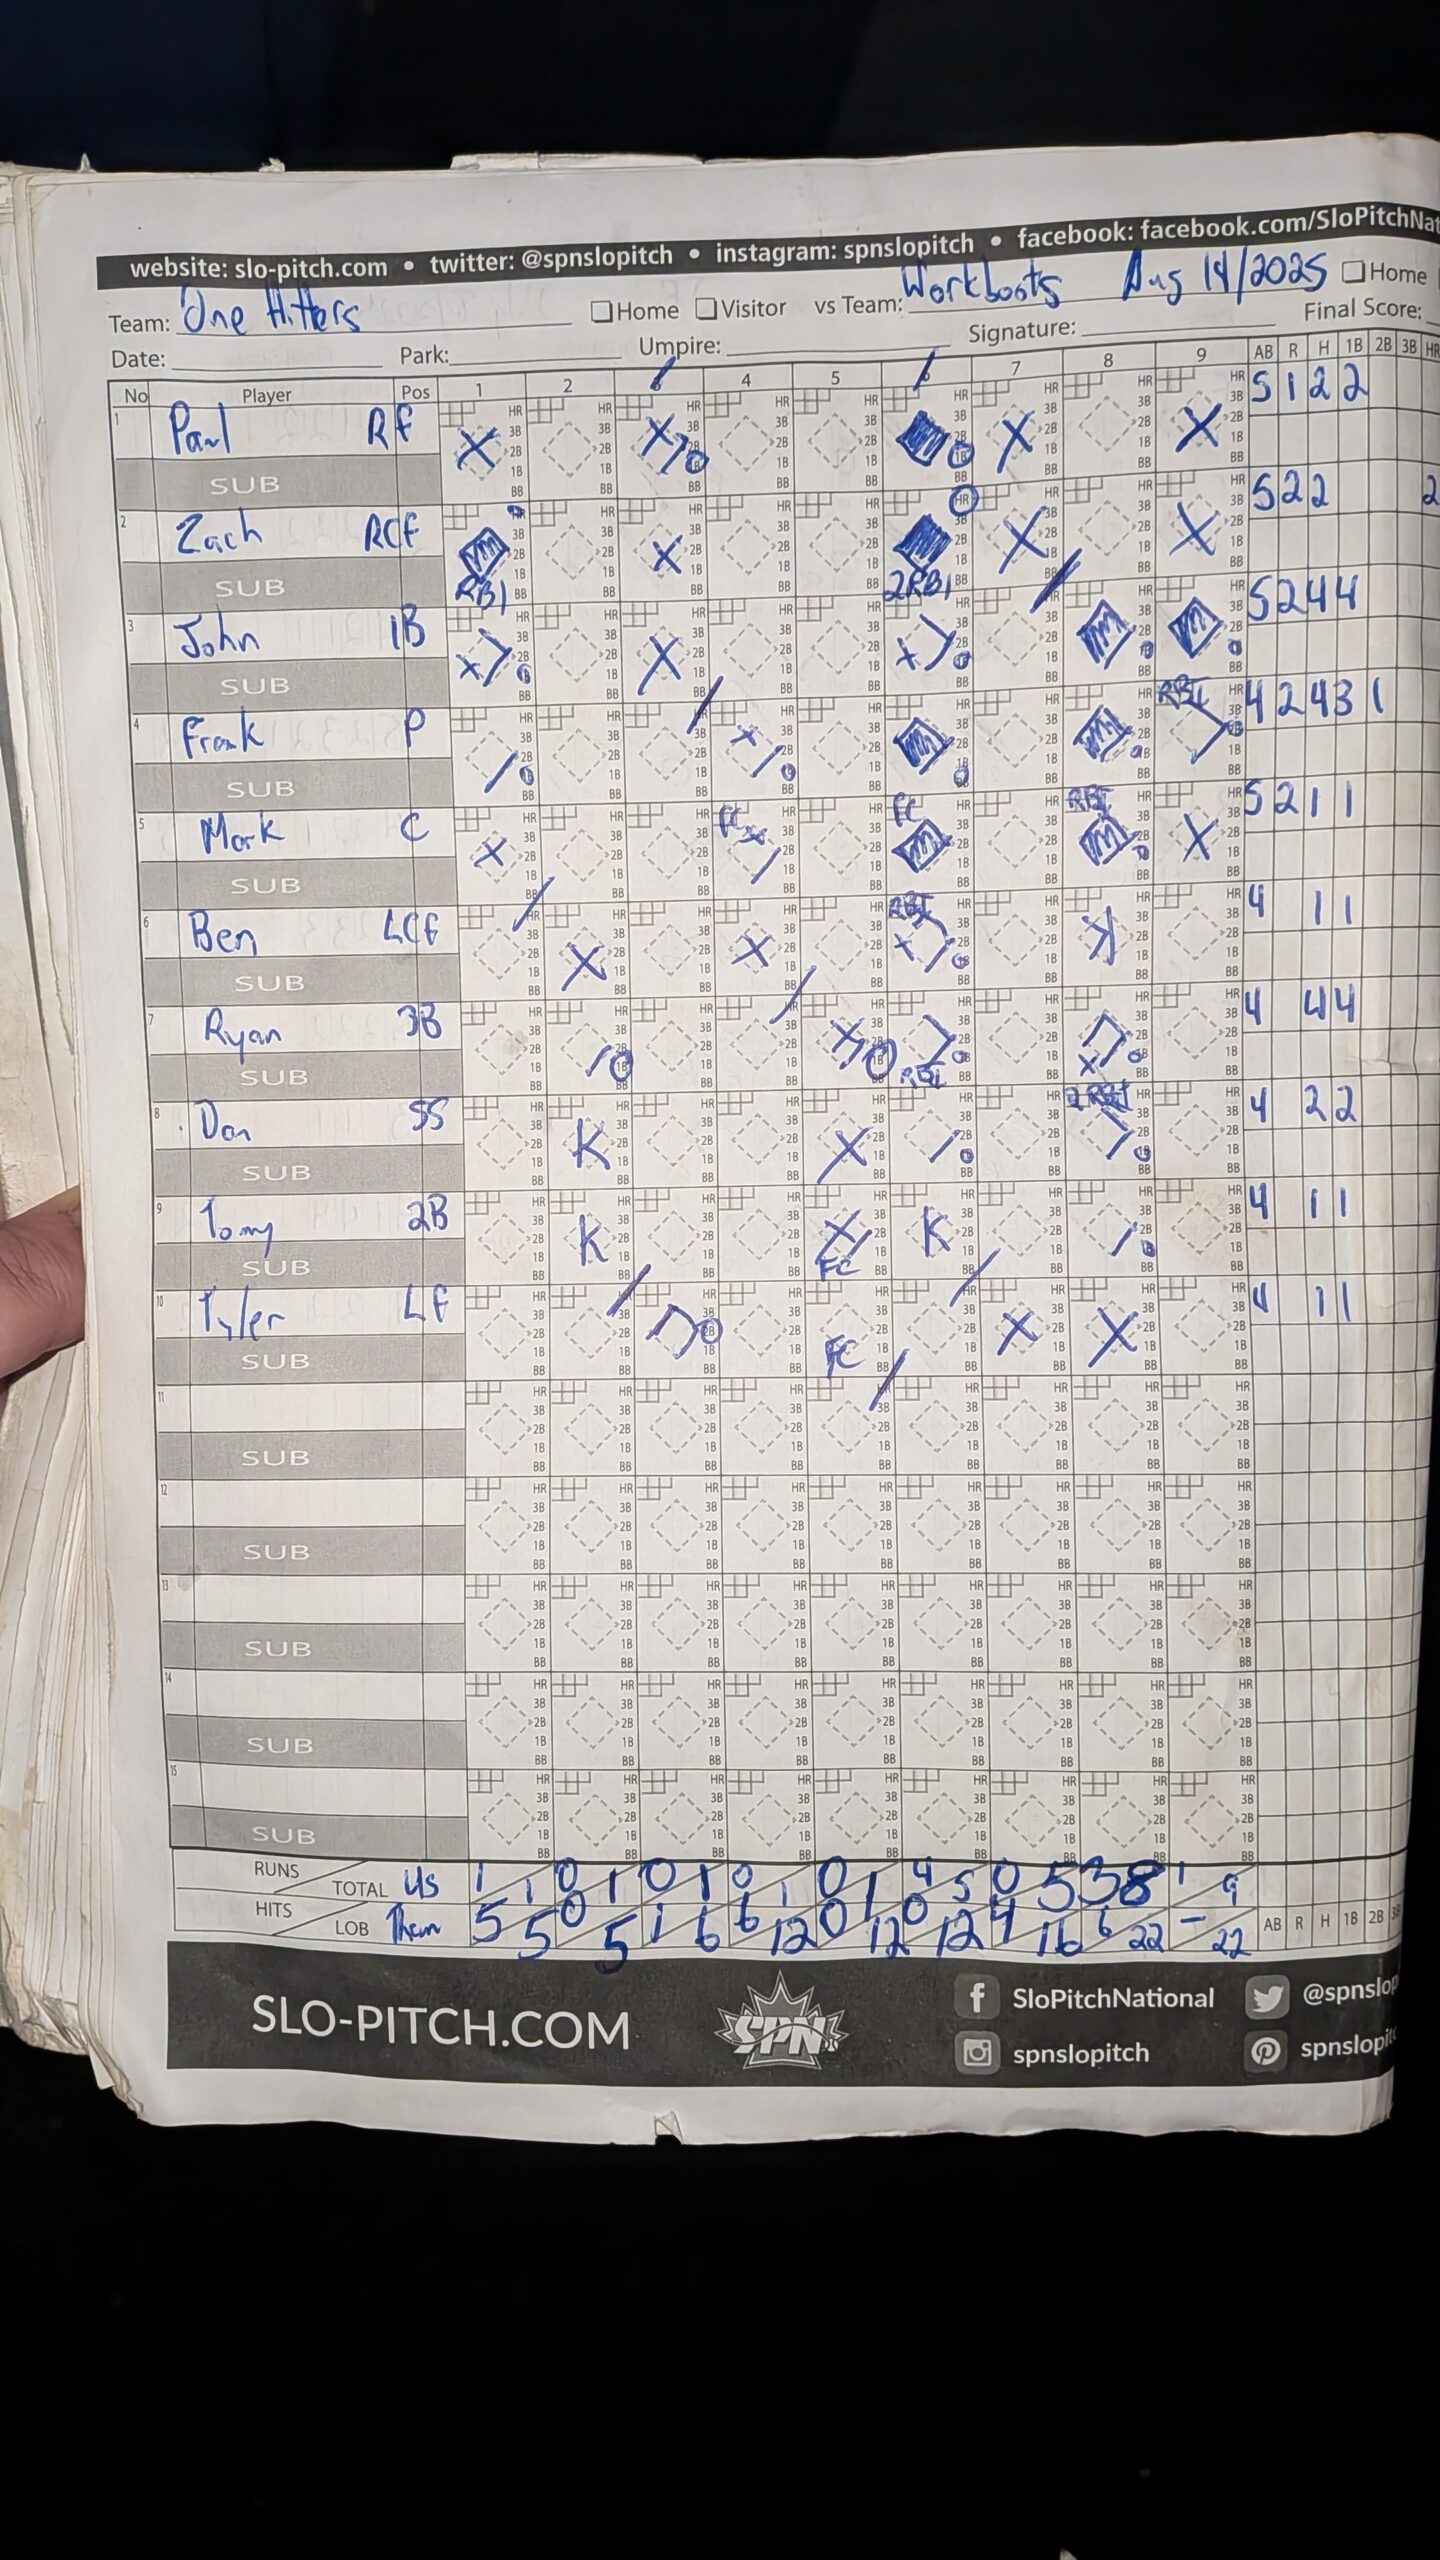 website: slo-pitch.com • twitter: @spnslopitch • instagram: spnslopitch • facebook: facebook.com/SloPitchNat
Team: One Hitters Home Visitor vs Team: Workboots Aug 14/2025 Home
Date: Park: Umpire: Signature: Final Score:
No Player Pos 1 2 4 5 7 8 9 AB R H 1B 2B 3B HR
1 Paul RF 5 1 2 2
SUB
2 Zach RCF 5 2 2 2
SUB RBI 2RBI
3 John 1B 5 2 4 4
SUB
4 Frank P RBI 4 2 4 3 1
SUB
5 Mark C FC FC RBI 5 2 1 1
SUB
6 Ben LCF RBI 4 1 1
SUB
7 Ryan 3B 4 4 4
SUB RBI
8 Dan SS K 2RBI 4 2 2
SUB
9 Tomy 2B K K 4 1 1
SUB FC
10 Tyler LF 4 1 1
SUB FC
11
SUB
12
SUB
13
SUB
14
SUB
15
SUB
RUNS TOTAL Us 1 1 0 1 0 1 0 1 0 1 4 5 0 5 3 8 1 9
HITS LOB Them 5 5 0 5 1 6 6 12 0 12 0 12 4 16 6 22 – 22 AB R H 1B 2B 3B
SLO-PITCH.COM SPN SloPitchNational @spnslop
spnslopitch spnslopitc